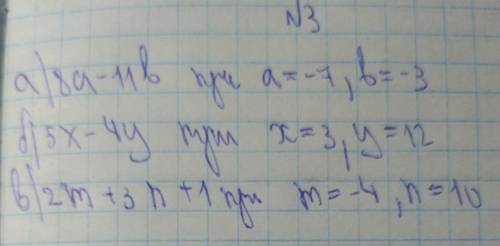 №3
а) 8а-11в при а=-7, в=-3
б) 5х-4у при х=3, у=12
в) 2m+3n+1 при m=-4, n=10